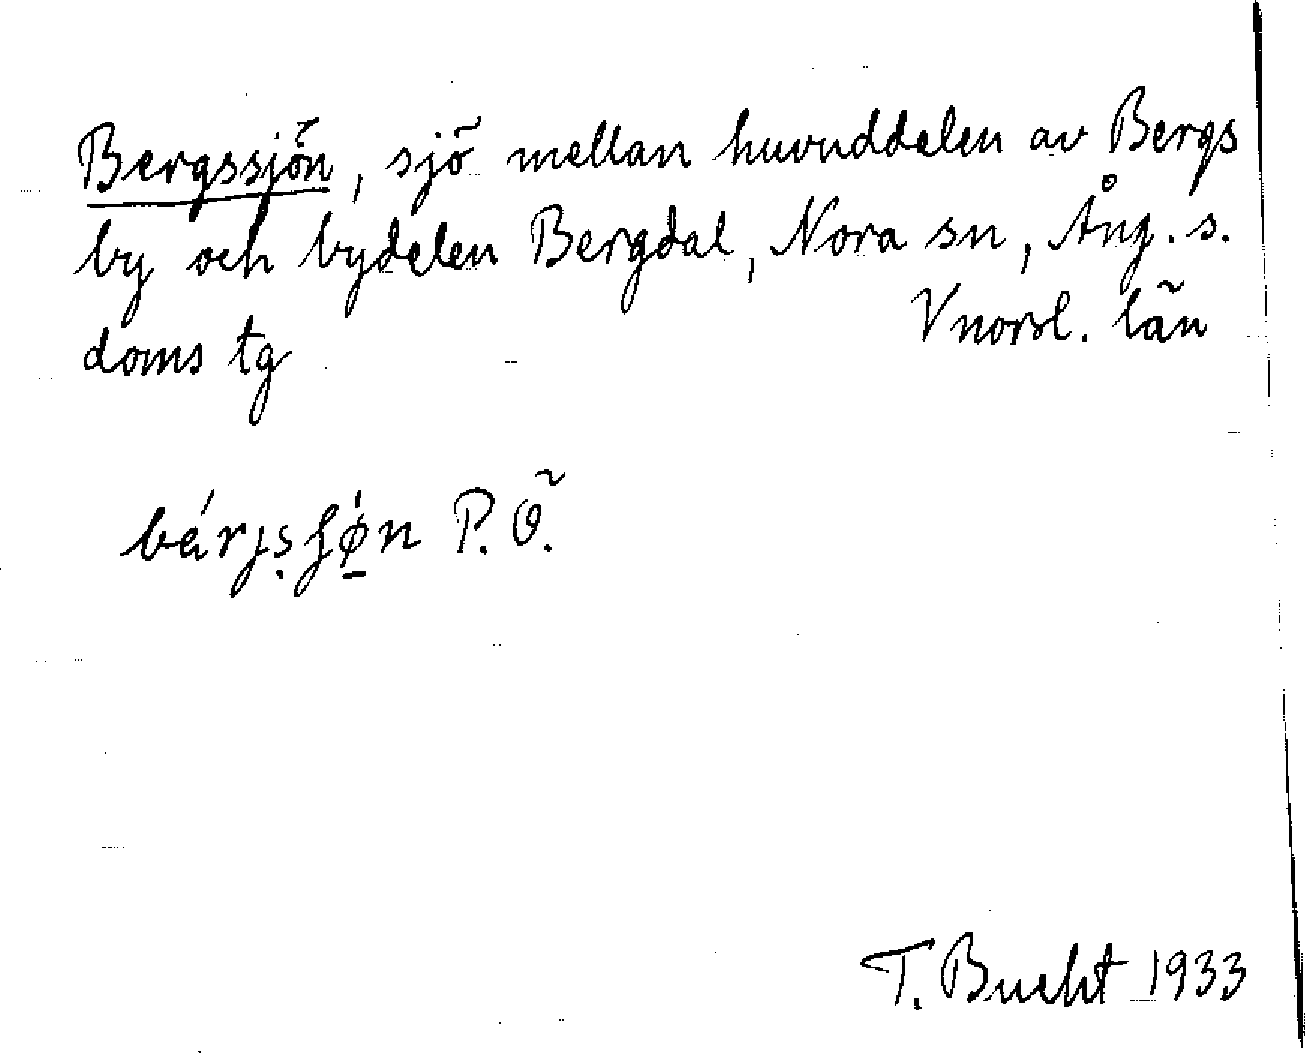 Bergssjön, sjö mellan huvuddelen av Bergs
by och bydelen Bergdal, Nora sn, Ång. s.
doms tg Vnorrl. län
P. Ö.
T. Bucht 1933